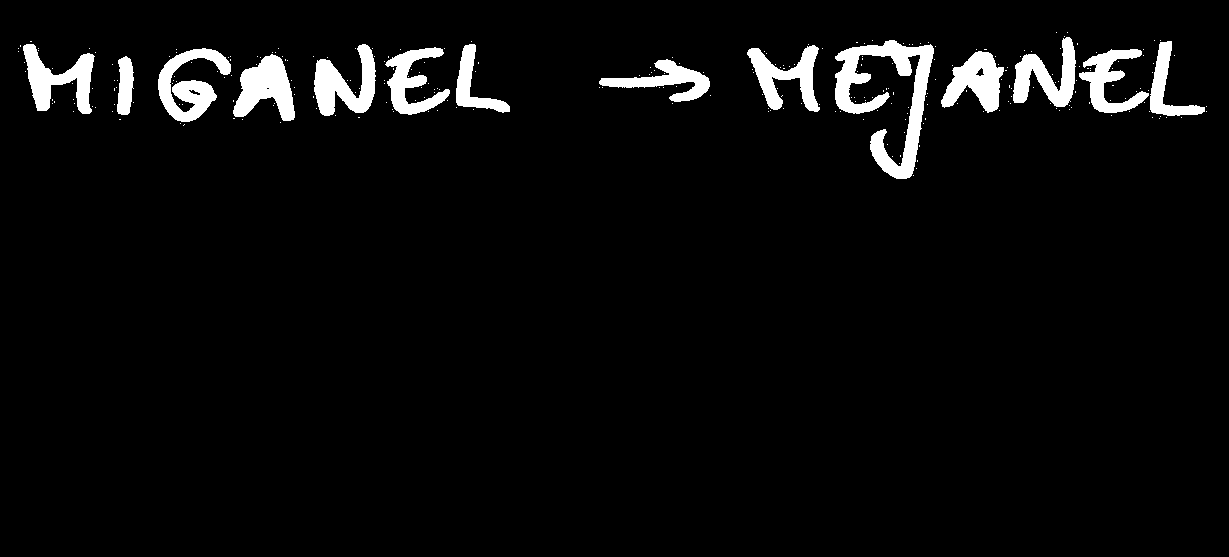 MIGANEL → MEJANEL